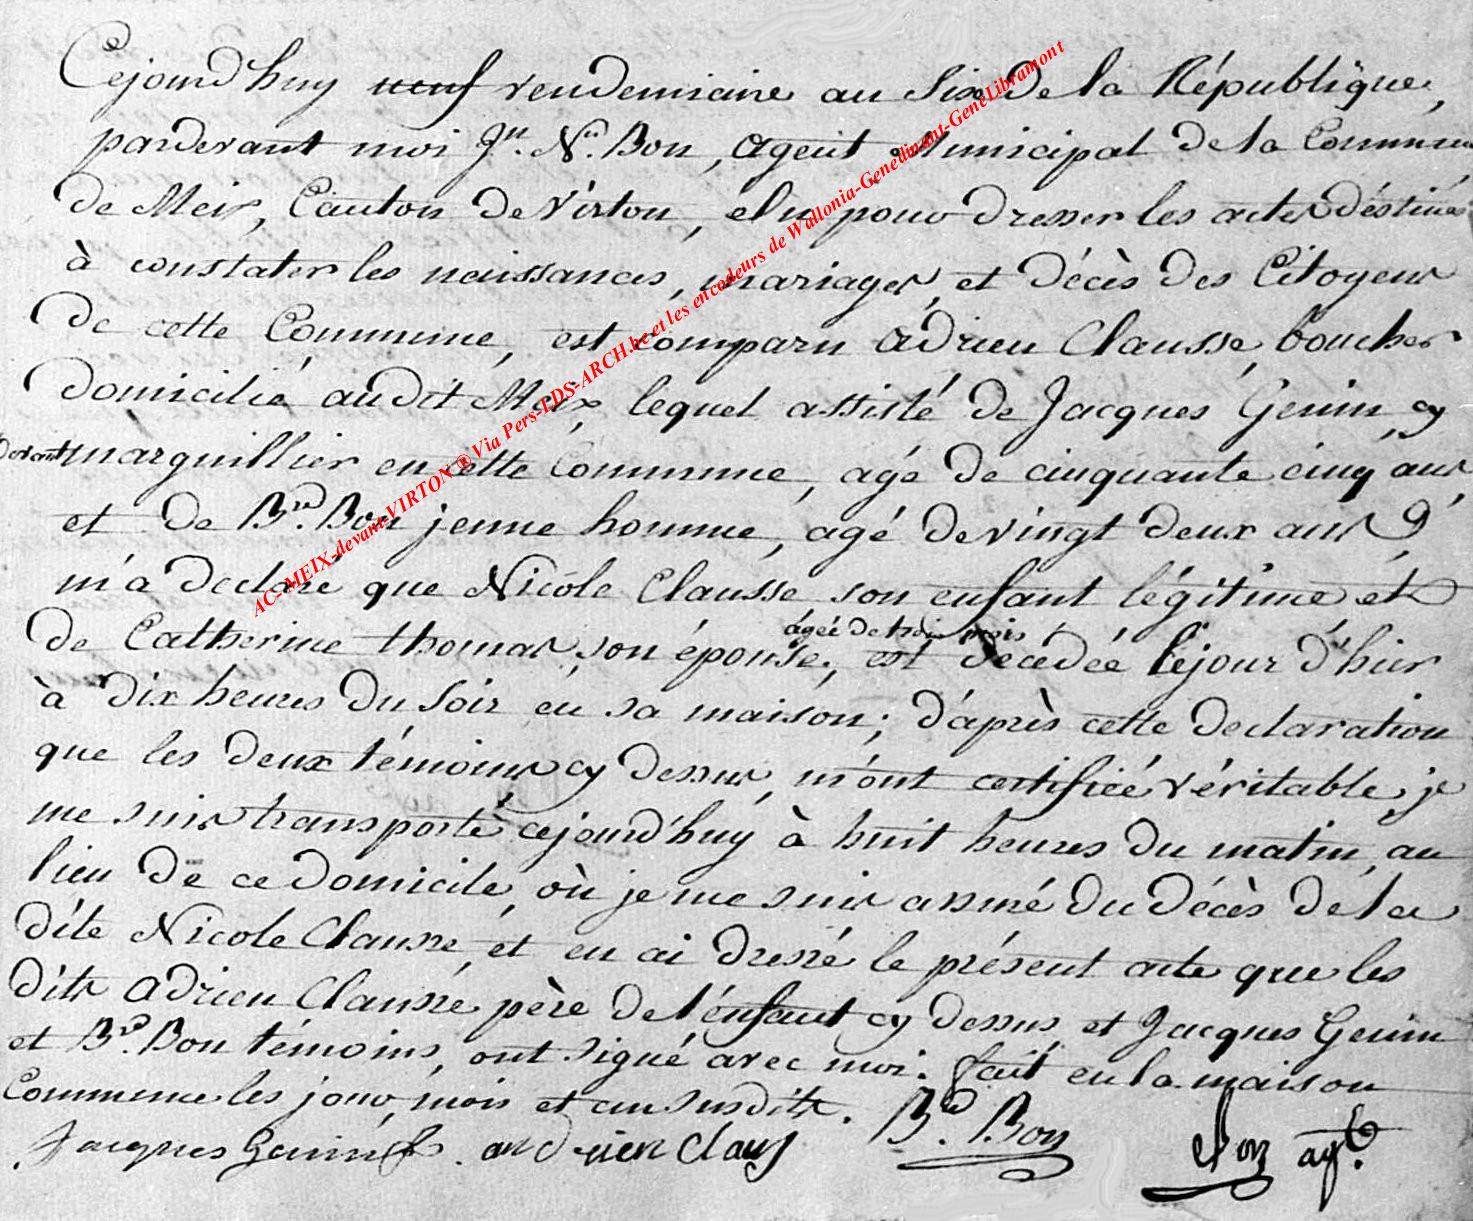 Cejourd'huy neuf vendemiaire an Six de la République,
pardevant moi Jn. Ns. Bon, agent Municipal de la Commune
de Meix, Canton de Virton, élu pour dresser les actes déstinés
à constater les naissances, mariages, et décès des Citoyens
de cette Commune, est comparu adrien Clausse, boucher
domicilié audit Meix, lequel assisté de Jacques Genin, cy
devant marguillier en cette Commune, agé de cinquante cinq ans
et de Bd. Bon jeune homme, agé de vingt deux ans
m'a declaré que Nicole Clausse son enfant légitime et
de Catherine thomas, son épouse, agée de trois mois, est décedée le jour d'hier
à dix heures du soir en sa maison; d'après cette declaration
que les deux témoins cy dessus, m'ont certifiée véritable, je
me suis transporté cejourd'huy à huit heures du matin, au
lieu de ce domicile, où je me suis assuré du décès de la
dite Nicole Clausse, et en ai dressé le présent acte que les
dits adrien Clausse père de l'enfant cy dessus, et Jacques Genin
et Bd. Bon témoins, ont signé avec moi. fait en la maison
Commune les jour, mois et an susdits.
Jacques Genin andrien Claus Bd. Bon Bon agt.
AC-MEIX-devant-VIRTON ® Via Pers-PDS-ARCH.be et les encodeurs de Wallonia-Genedinant-GeneLibramont